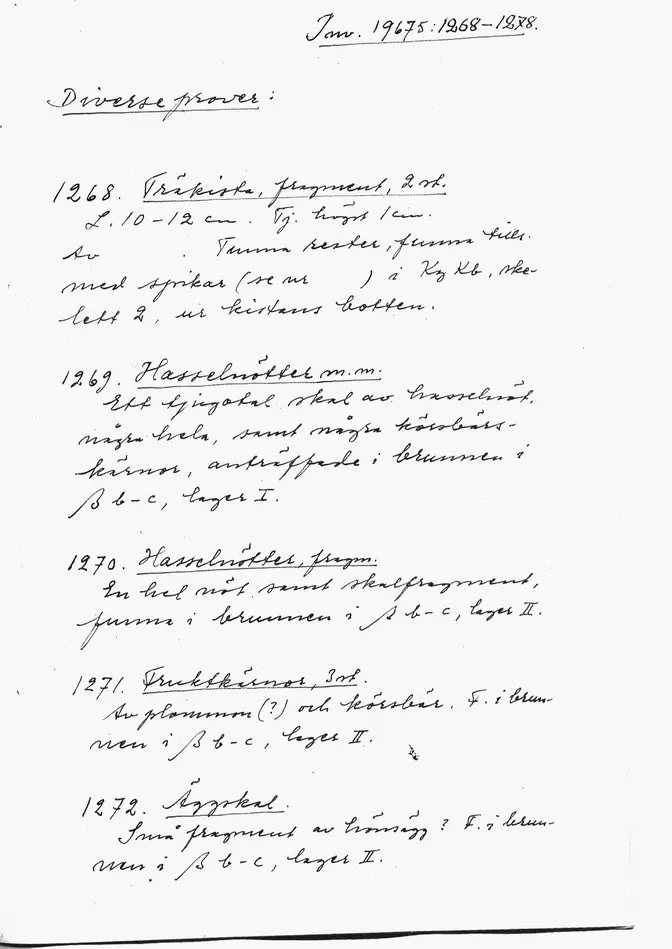 Inv. 19675:1268–1278.
Diverse prover:
1268. Träkista, fragment, 2 st.
L. 10–12 cm. Tj. högst 1 cm.
Av . Tunna rester, funna tills.
med spikar (se nr ) i Kg Kb, ske-
lett 2, ur kistans botten.
1269. Hasselnötter m.m.
Ett tjugotal skal av hasselnöt,
några hela, samt några körsbärs-
kärnor, anträffade i brunnen i
β b–c, lager I.
1270. Hasselnötter, fragm.
En hel nöt samt skalfragment,
funna i brunnen i β b–c, lager II.
1271. Fruktkärnor, 3 st.
Av plommon (?) och körsbär. F. i brun-
nen i β b–c, lager II.
1272. Äggskal.
Små fragment av hönsägg? F. i brun-
nen i β b–c, lager II.